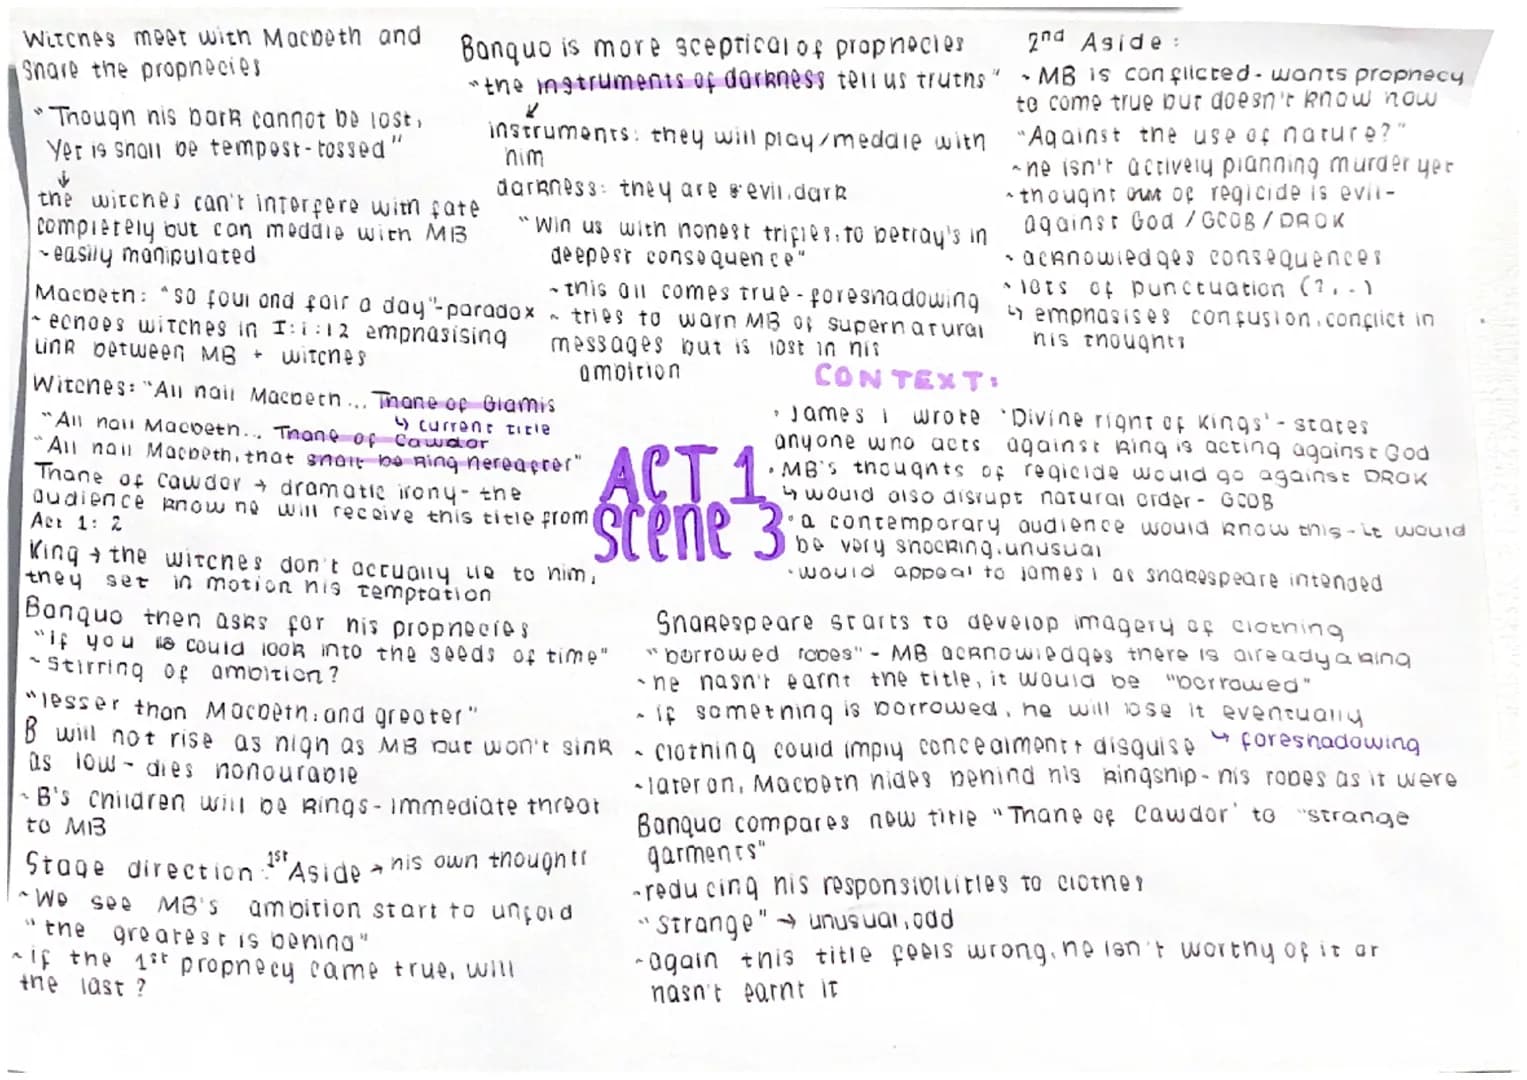 Witches meet with Macbeth and
share the prophecies
"Though his bark cannot be lost,
Yet is shall be tempest-tossed"
↓
the witches can't interfere with fate
completely but can meddle with MB
~ easily manipulated
Macbeth: "so foul and fair a day" - paradox
~ echoes witches in I:i:12 emphasising
link between MB + witches
Witches: "All hail Macbeth... Thane of Glamis
↳ current title
"All hail Macbeth... Thane of Cawdor
"All hail Macbeth, that shalt be king hereafter"
Thane of Cawdor → dramatic irony - the
audience know he will receive this title from
Act 1: 2
King → the witches don't actually lie to him,
they set in motion his temptation
Banquo then asks for his prophecies
"if you could look into the seeds of time"
~ stirring of ambition?
"lesser than Macbeth, and greater"
B will not rise as high as MB but won't sink
as low - dies honourable
~ B's children will be kings - immediate threat
to MB
Stage direction: 1st Aside → his own thoughts
~ We see MB's ambition start to unfold
"the greatest is behind"
~ if the 1st prophecy came true, will
the last?
Banquo is more sceptical of prophecies
"the instruments of darkness tell us truths"
↙
instruments: they will play/meddle with
him
darkness: they are evil, dark
"Win us with honest trifles, to betray's in
deepest consequence"
~ this all comes true - foreshadowing
~ tries to warn MB of supernatural
messages but is lost in his
ambition
2nd Aside:
~ MB is conflicted - wants prophecy
to come true but doesn't know how
"Against the use of nature?"
~ he isn't actively planning murder yet
~ thought of regicide is evil -
against God / GCOB / DROK
~ acknowledges consequences
~ lots of punctuation (?, . -)
↳ emphasises confusion, conflict in
his thoughts
ACT 1
scene 3
CONTEXT:
• James I wrote 'Divine right of Kings' - states
anyone who acts against king is acting against God
• MB's thoughts of regicide would go against DROK
↳ would also disrupt natural order - GCOB
• a contemporary audience would know this - it would
be very shocking, unusual
• would appeal to James I as Shakespeare intended
Shakespeare starts to develop imagery of clothing
"borrowed robes" - MB acknowledges there is already a king
~ he hasn't earnt the title, it would be "borrowed"
~ if something is borrowed, he will lose it eventually
↳ foreshadowing
~ clothing could imply concealment + disguise
~ later on, Macbeth hides behind his kingship - his robes as it were
Banquo compares new title "Thane of Cawdor' to "strange
garments"
~ reducing his responsibilities to clothes
"strange" → unusual, odd
~ again this title feels wrong, he isn't worthy of it or
hasn't earnt it